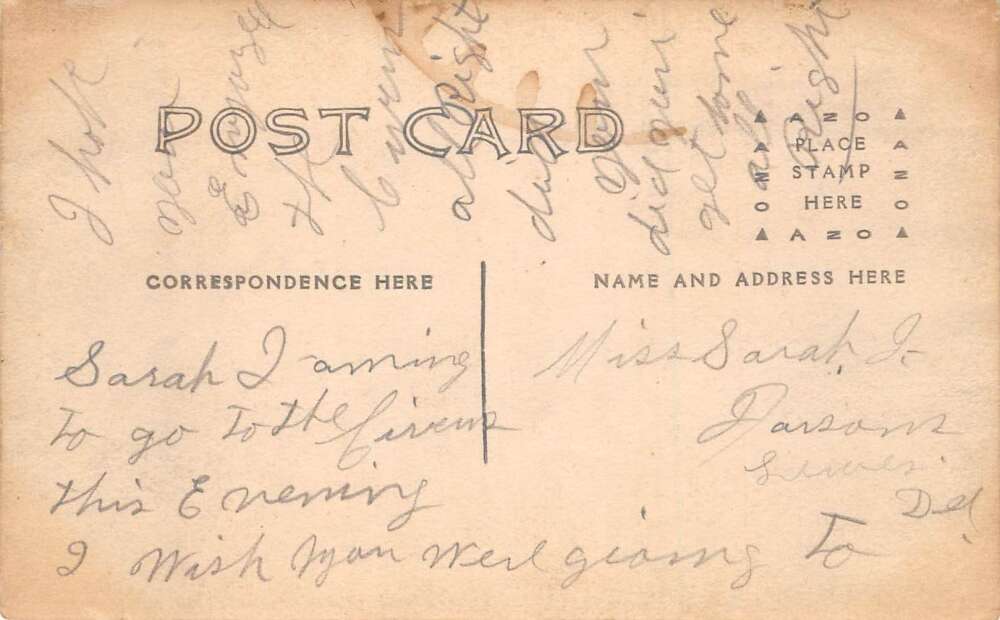 I hope
you
Enjoyed
the
all Right
did you
get home
all
Right
POST CARD
AZO
PLACE
STAMP
HERE
AZO
CORRESPONDENCE HERE
NAME AND ADDRESS HERE
Sarah I aming
to go to the Circus
this Evening
I Wish you werl gioing to
Miss Sarah J.
Parsons
Lewes.
Del.